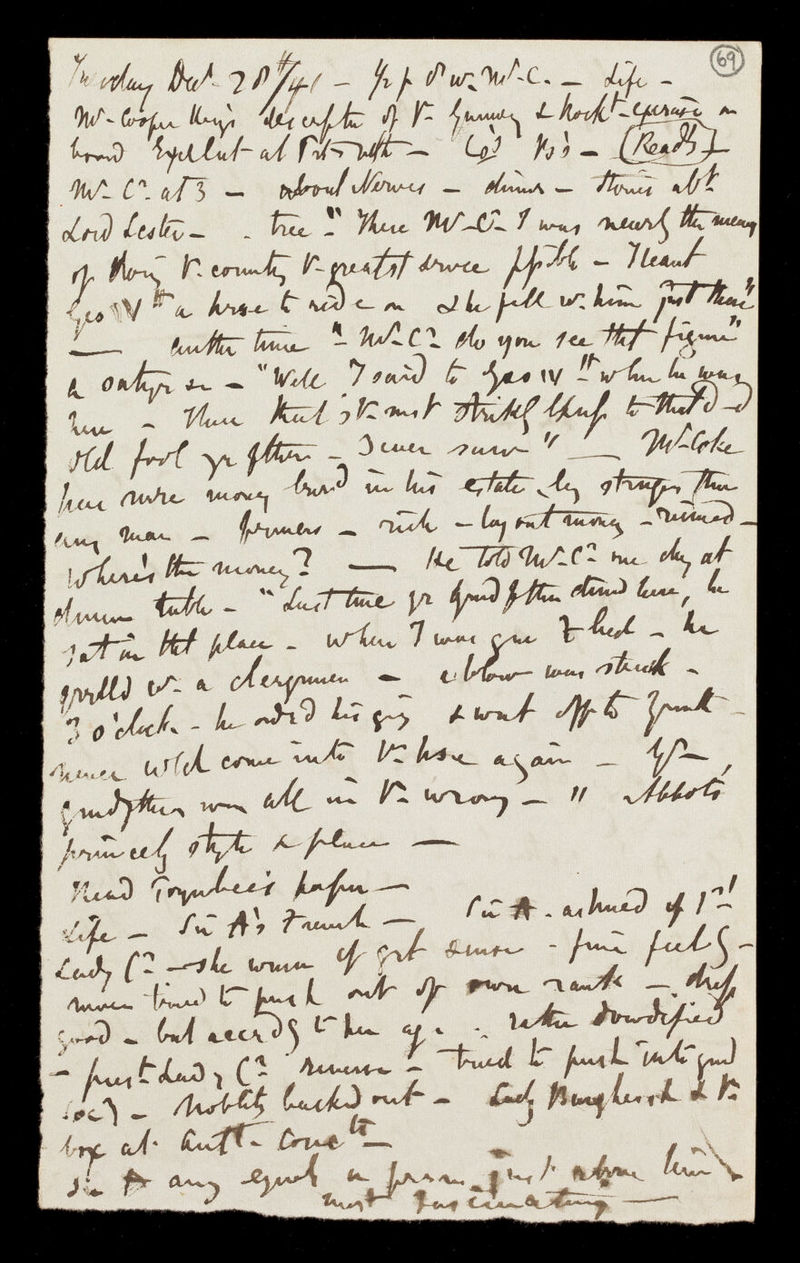 69
Tuesday Decr. 28th/41 - ½ p 8 w. Mr. C. - Life -
Mr. Cooper King's descriptn of Ye Gunnery & Rockt. exercise on
board Excellent at Portsmth - Co's Ho's - (Read's)
Mr. Cr. at 3 - about Nerves - dinner - stories abt.
Lord Lester - tree - "There Mr. Cr. I was nearly the means
of doing Ye country Ye greatest service possible - I leant
Geo IVth a horse to ride on & he fell w. him just there"
- another time "Mr. Cr. do you see that figure"
a satyr - "Well I said to Geo IVth when he was
here - There that's Ye most striking likeness to that d-d
old fool yr father - I ever saw" - Mr. Coke
has more money buried in his estate by strangers than
any man - farmers - rich - lay out money - ruined -
Where's the money? - He told Mr. Cr. one day at
dinner table - "Last time yr grandfather dined here, he
sat in that place - when I was gone to bed - he
qrrelld w. a clergyman - a blow was struck -
3 o'clock - he orderd his gig & went off to Yarmth -
never wld come into Ye house again - Yr
grandfather was all in Ye wrong - " Abbots
princely style & place -
Read Toynbee's paper -
Life - Sir A's French - Sir A. ashamed of 1st
Lady Cr. - she woman of grt sense - fine feelg -
never tried to push out of own rank - dress
good - but accordg to her age - rather dowdified
- prest Lady Cr. reverse - tried to push into good
Soc'y - Nobility backed out - Lady Burghersh & Ye
box at Antt. Concts -
Sir A any equals or person just above him
most fascinating -